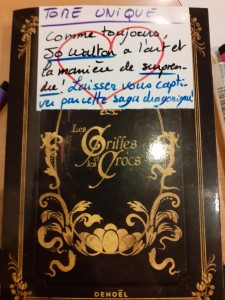 TOME UNIQUE
Comme toujours,
Jo Walton a l'art et
la manière de surpren-
dre! Laissez vous capti-
ver par cette saga dragonique!
Les Griffes
et les
Crocs
DENOËL